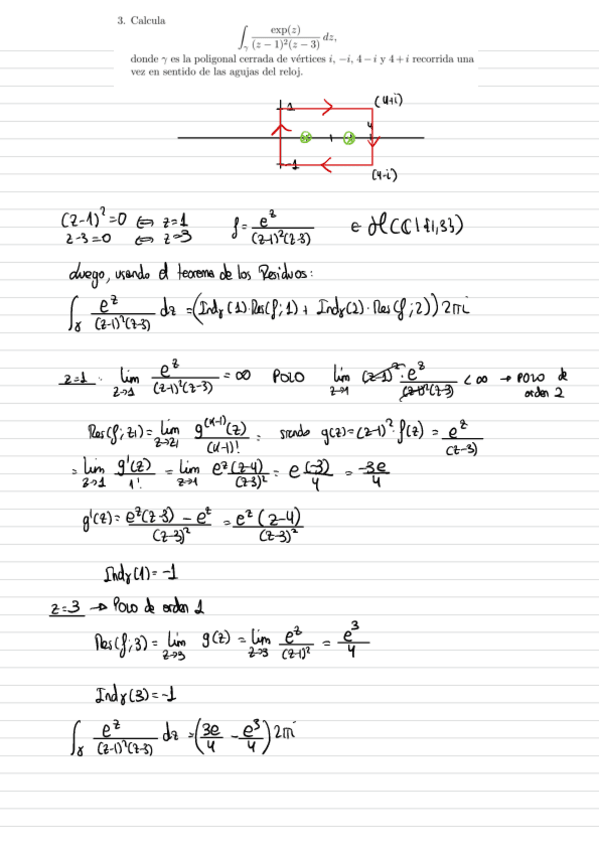 3. Calcula
∫_γ exp(z) / (z − 1)²(z − 3) dz,
donde γ es la poligonal cerrada de vértices i, −i, 4 − i y 4 + i recorrida una
vez en sentido de las agujas del reloj.
1 (4+i)
4
-1
(4-i)
(z-1)² = 0 ⇔ z=1 f = e^z / (z-1)²(z-3) ∈ H(ℂ\{1,3})
z-3=0 ⇔ z=3
Luego, usando el teorema de los Residuos:
∫_γ e^z / (z-1)²(z-3) dz = (Ind_γ(1)·Res(f;1) + Ind_γ(2)·Res(f;2)) 2πi
z=1. lim_{z→1} e^z / (z-1)²(z-3) = ∞ POLO lim_{z→1} (z-1)²·e^z / (z-1)²(z-3) < ∞ → POLO de orden 2
Res(f; z₁) = lim_{z→z₁} g^(k-1)(z) / (k-1)! = siendo g(z) = (z-1)²·f(z) = e^z / (z-3)
= lim_{z→1} g'(z) / 1! = lim_{z→1} e^z(z-4) / (z-3)² = e(-3) / 4 = -3e / 4
g'(z) = e^z(z-3) - e^z / (z-3)² = e^z(z-4) / (z-3)²
Ind_γ(1) = -1
z=3 → Polo de orden 1
Res(f;3) = lim_{z→3} g(z) = lim_{z→3} e^z / (z-1)² = e³ / 4
Ind_γ(3) = -1
∫_γ e^z / (z-1)²(z-3) dz = (3e/4 - e³/4) 2πi